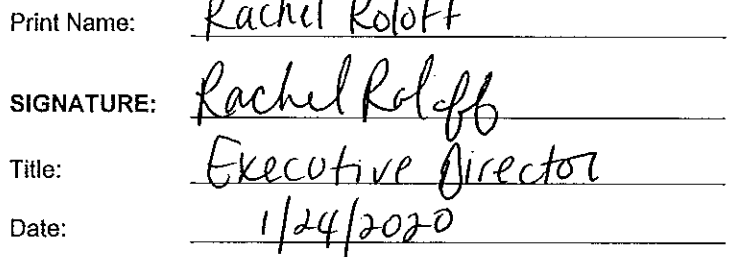 Print Name: Rachel Roloff
SIGNATURE: Rachel Roloff
Title: Executive Director
Date: 1/24/2020